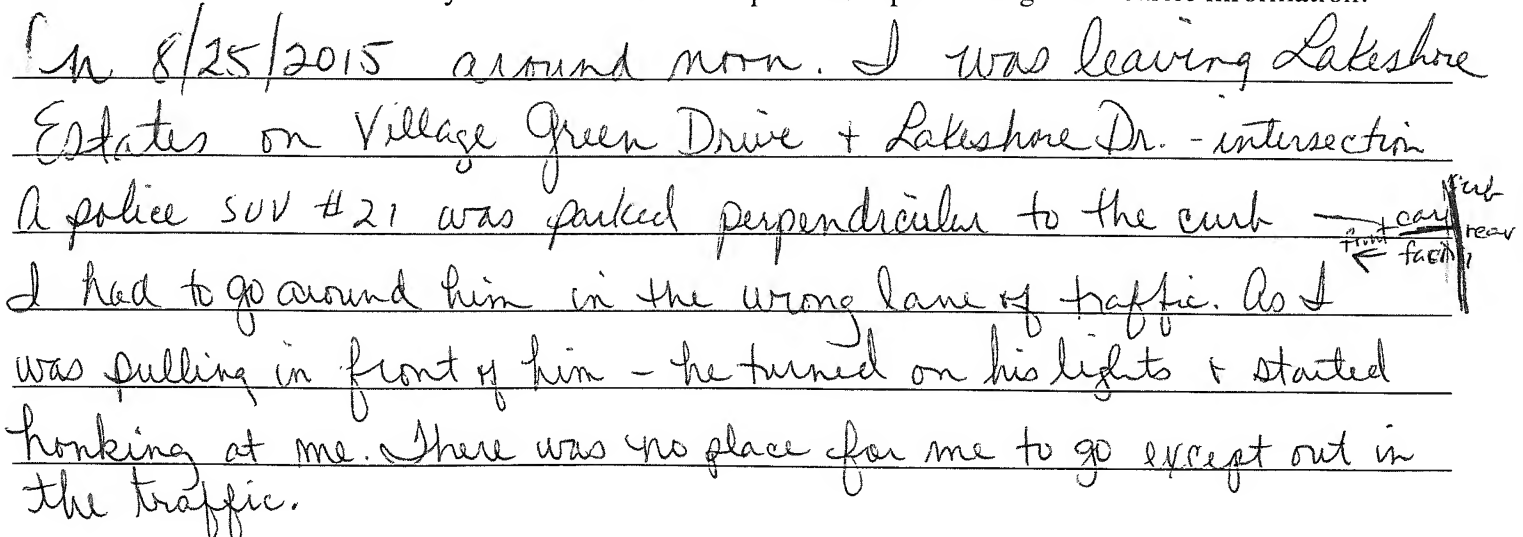 On 8/25/2015 around noon. I was leaving Lakeshore
Estates on Village Green Drive + Lakeshore Dr. - intersection
A police SUV #21 was parked perpendicular to the curb
curb
car rear
front facing
I had to go around him in the wrong lane of traffic. As I
was pulling in front of him - he turned on his lights + started
honking at me. There was no place for me to go except out in
the traffic.